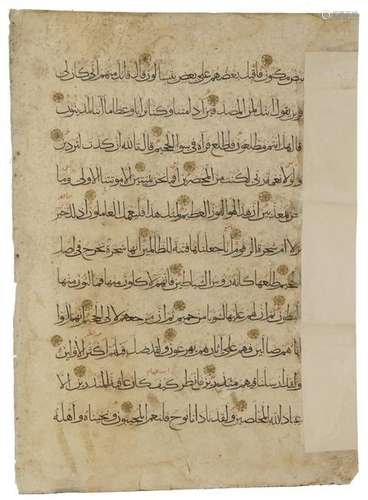 بيض مكنون فاقبل بعضهم على بعض يتسالون قال قائل منهم انى كان لى
قرين يقول ائنك لمن المصدقين ائذا متنا وكنا ترابا وعظاما ائنا لمدينون
قال هل انتم مطلعون فاطلع فرآه فى سواء الجحيم قال تالله ان كدت لتردين
ولولا نعمة ربى لكنت من المحضرين افما نحن بميتين الا موتتنا الاولى وما
نحن بمعذبين ان هذا لهو الفوز العظيم لمثل هذا فليعمل العاملون اذلك خير
نزلا ام شجرة الزقوم انا جعلناها فتنة للظالمين انها شجرة تخرج فى اصل
الجحيم طلعها كانه رؤس الشياطين فانهم لاكلون منها فمالئون منها
البطون ثم ان لهم عليها لشوبا من حميم ثم ان مرجعهم لالى الجحيم انهم الفوا
اباءهم ضالين فهم على اثارهم يهرعون ولقد ضل قبلهم اكثر الاولين
ولقد ارسلنا فيهم منذرين فانظر كيف كان عاقبة المنذرين الا
عباد الله المخلصين ولقد نادانا نوح فلنعم المجيبون ونجيناه واهله